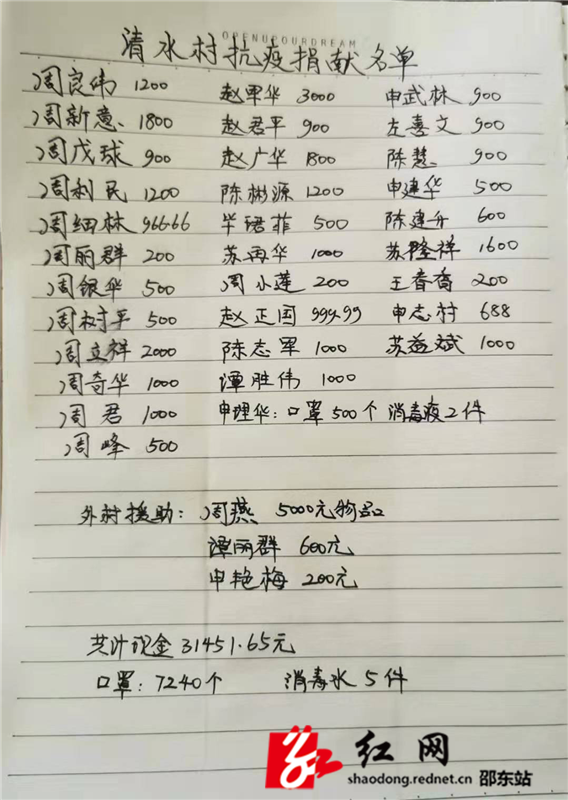 OPENYOURDREAM
清水村抗疫捐献名单
周良伟 1200 赵军华 3000 申武林 900
周新意 1800 赵君平 900 左喜文 900
周戊球 900 赵广华 1800 陈慧 900
周利民 1200 陈彬源 1200 申建华 500
周细林 966.66 毕珺菲 500 陈建升 600
周丽群 200 苏再华 1000 苏隆祥 1600
周银华 500 周小莲 200 王香香 200
周树平 500 赵正国 999.99 申志村 688
周立祥 2000 陈志军 1000 苏益斌 1000
周奇华 1000 谭胜伟 1000
周君 1000 申理华：口罩500个 消毒液2件
周峰 500
外村援助：周燕 5000元物品
谭丽群 600元
申艳梅 200元
共计现金 31451.65元
口罩：7240个 消毒水5件
红网
shaodong.rednet.cn 邵东站